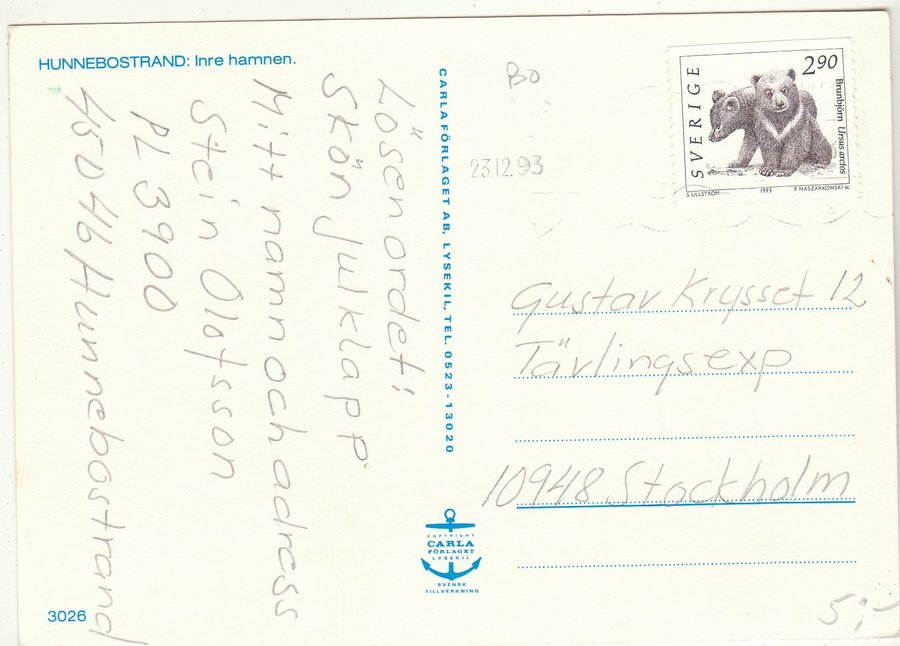 HUNNEBOSTRAND: Inre hamnen.
Lösenordet:
Skön julklapp.
Mitt namn och adress
Stein Olofsson
PL 3900
450 46 Hunnebostrand
3026
CARLA FÖRLAGET AB, LYSEKIL, TEL. 0523-13020
COPYRIGHT
CARLA
FÖRLAGET
LYSEKIL
SVENSK
TILLVERKNING
BO
23.12.93
SVERIGE
290
Brunbjörn Ursus arctos
S. ULLSTRÖM 1993 P. NASZARKOWSKI SC
Gustav Krysset 12
Tävlingsexp
10948 Stockholm
5:-